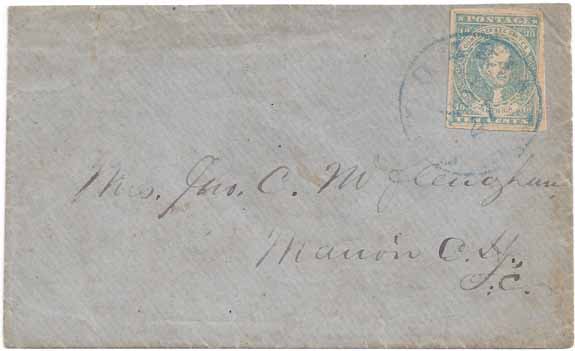 POSTAGE
TEN CENTS
Mrs. Jno. C. McClenaghan,
Marion C. H.,
S. C.